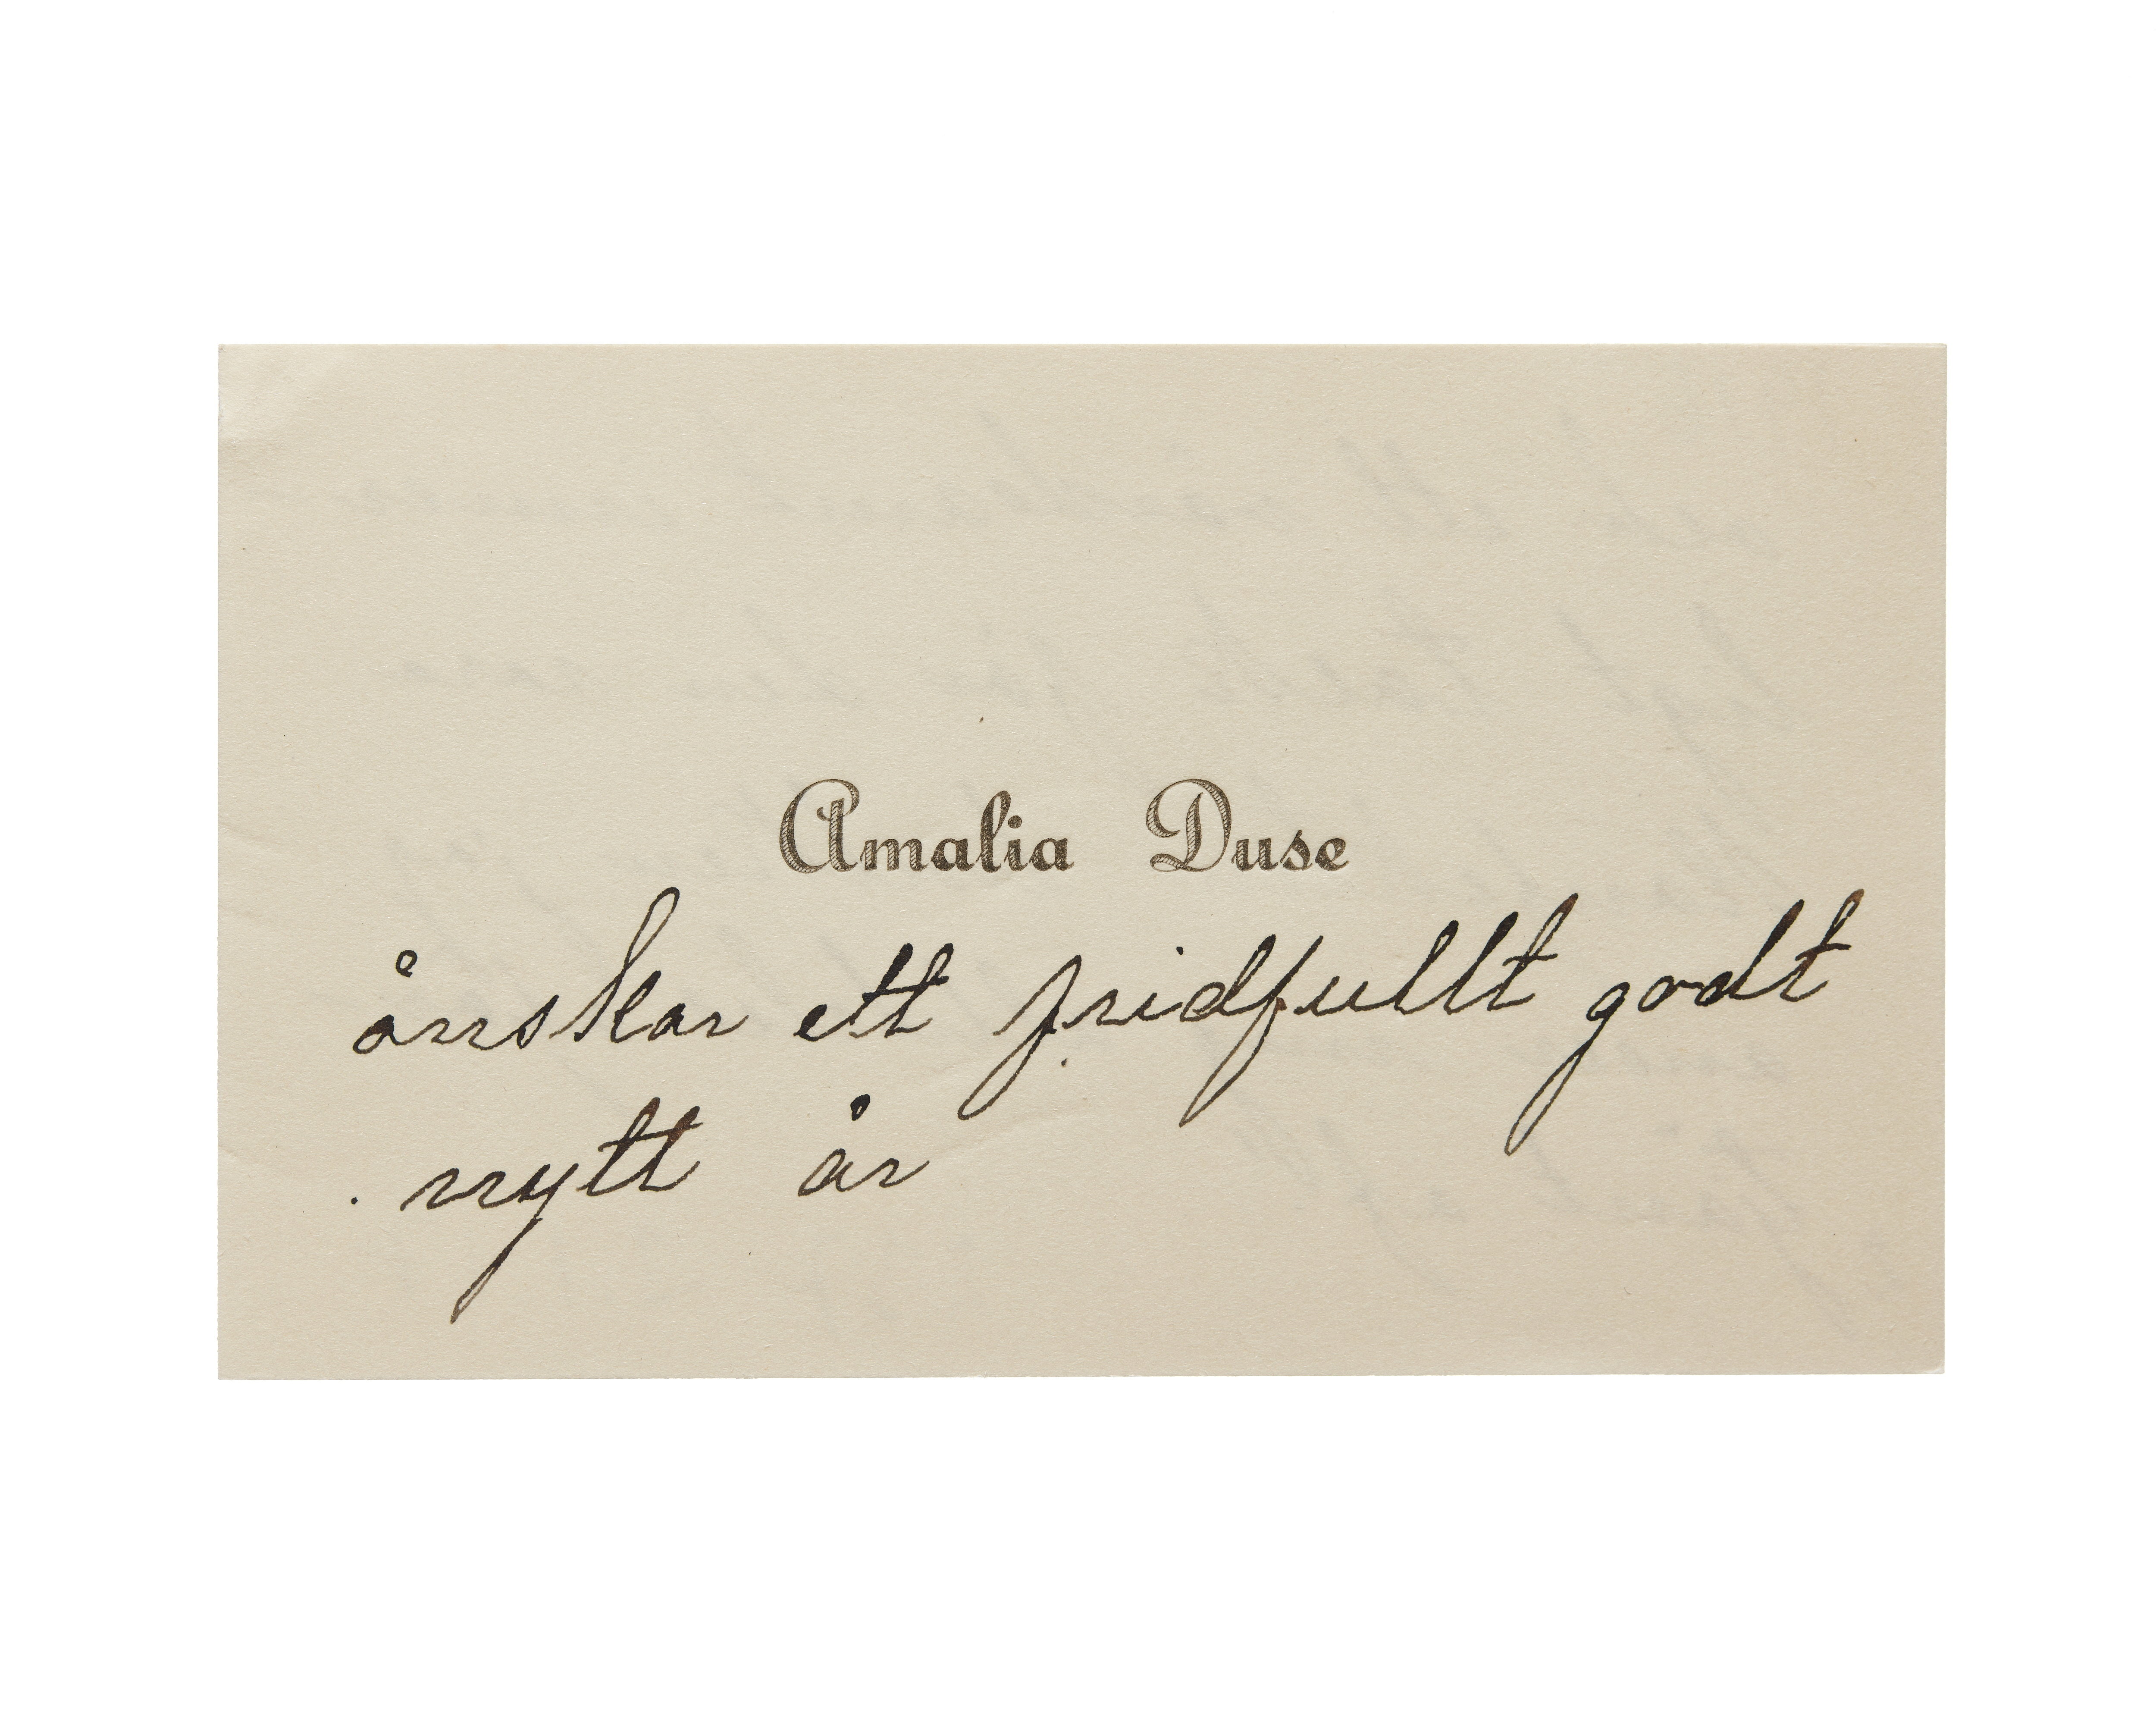 Amalia Duse
önskar ett fridfullt godt
nytt år